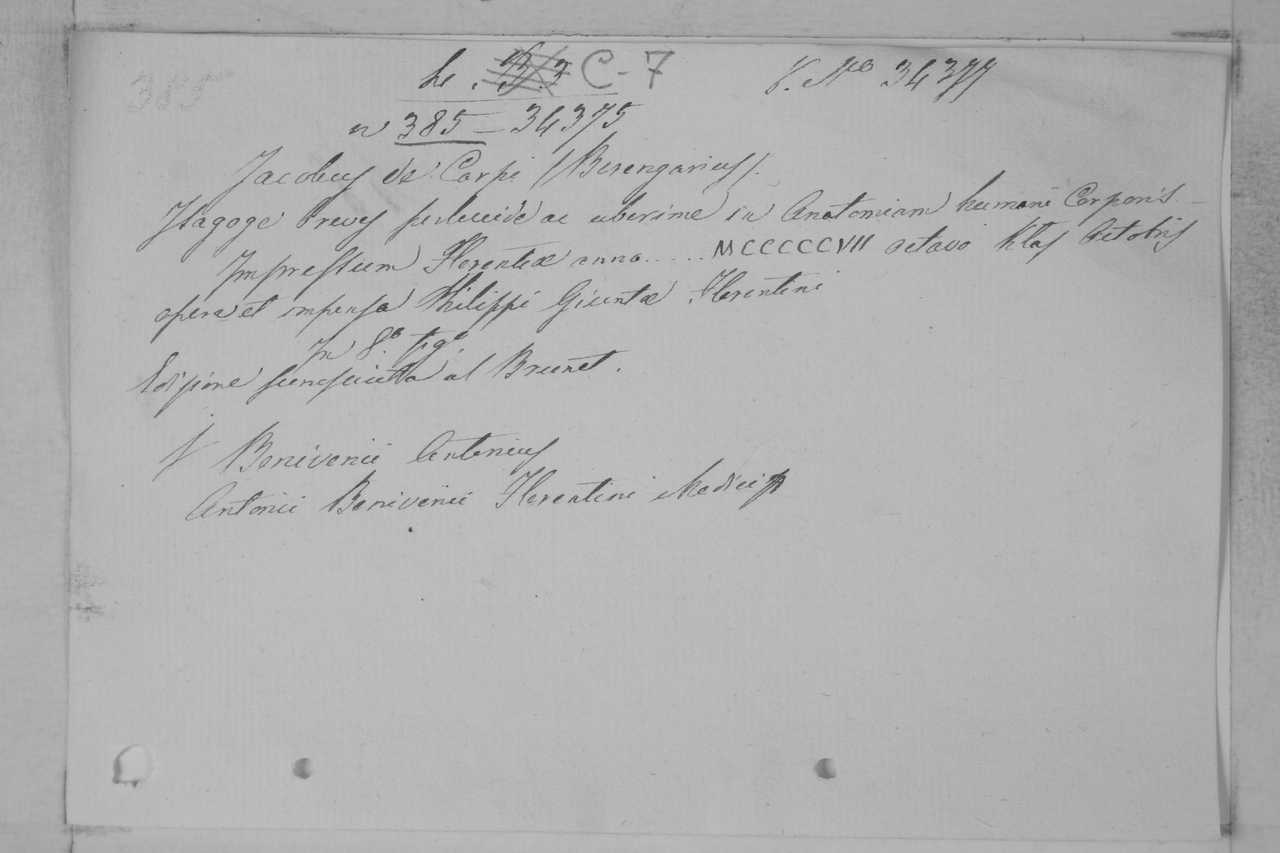 C-7 V. No 34377
n 385 - 34375
Jacobus de Carpi (Berengarius).
Isagoge breves perlucide ac uberime in Anatomiam humani Corporis
Impressum Florentiæ anno..... MCCCCCVII octavo Klas Octobris
opera et impensa Philippi Giuntæ Florentini
In 8.o fig.o
Edizione sconosciuta al Brunet.
Benivenii Antonius
Antonii Benivenii Florentini Medici